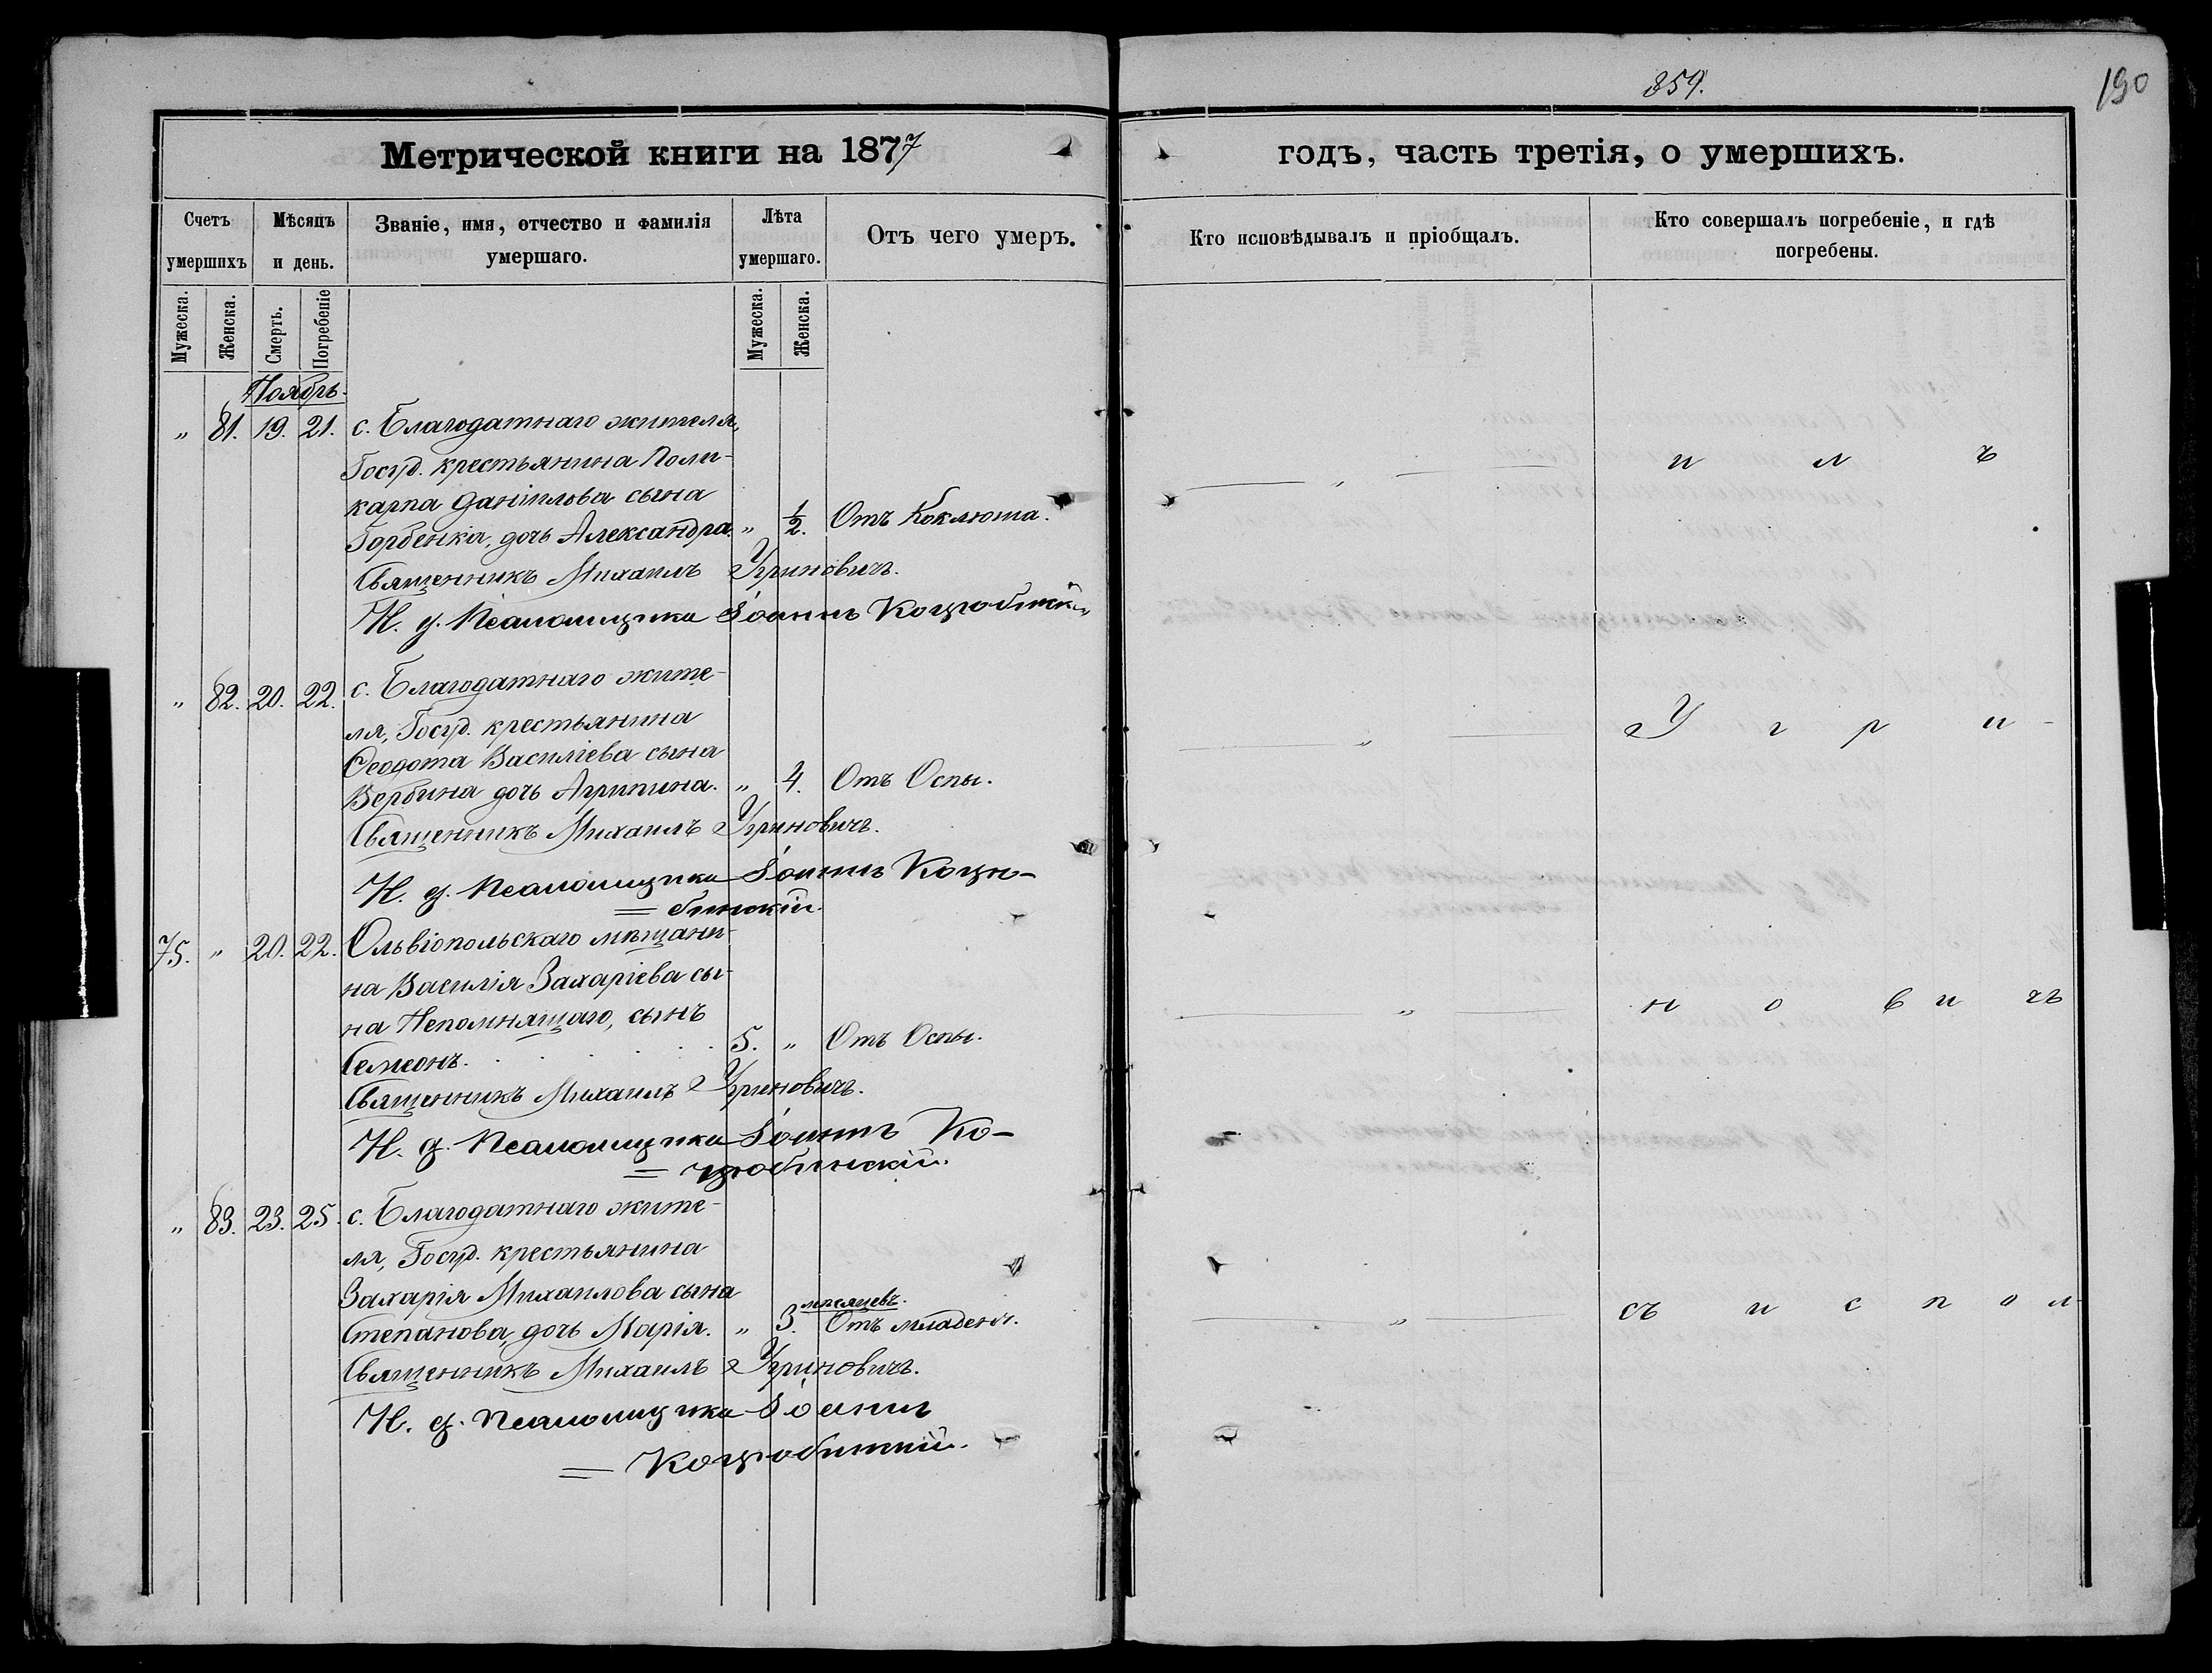 359.
190
Метрической книги на 1877
годъ, часть третія, о умершихъ.
Счетъ умершихъ
Мѣсяцъ и день.
Званіе, имя, отчество и фамилія умершаго.
Лѣта умершаго.
Отъ чего умеръ.
Кто исповѣдывалъ и пріобщалъ.
Кто совершалъ погребеніе, и гдѣ погребены.
Мужеска.
Женска.
Смерть.
Погребеніе
Мужеска.
Женска.
Ноябрь.
„ 81. 19. 21. с. Благодатнаго жителя,
Госуд. крестьянина Поли-
карпа Даніилова сына
Горбенка, дочь Александра. „ 1/2. Отъ Коклюша.
и л ъ
Священникъ Михаилъ Угриновичъ.
И. д. Псаломщика Іоаннъ Коцюбинскій
„ 82. 20. 22. с. Благодатнаго жите-
ля, Госуд. крестьянина
Ѳеодота Василіева сына
Вербина дочь Агрипина. „ 4. Отъ Оспы.
„ У г р и -
Священникъ Михаилъ Угриновичъ.
И. д. Псаломщика Іоаннъ Коцю-
= бинскій.
75. „ 20. 22. Ольвіопольскаго мѣщани-
на Василія Захаріева сы-
на Непомнящаго, сынъ
Семеонъ. 5. „ Отъ Оспы.
„ н о в и чъ
Священникъ Михаилъ Угриновичъ.
И. д. Псаломщика Іоаннъ Ко-
= цюбинскій.
„ 83. 23. 25. с. Благодатнаго жите-
ля, Госуд. крестьянина
Захарія Михаилова сына
мѣсяцевъ.
Степанова, дочь Марія. „ 3. Отъ младенч.
„ съ и с п о л
Священникъ Михаилъ Угриновичъ.
И. д. Псаломщика Іоаннъ
= Коцюбинскій.